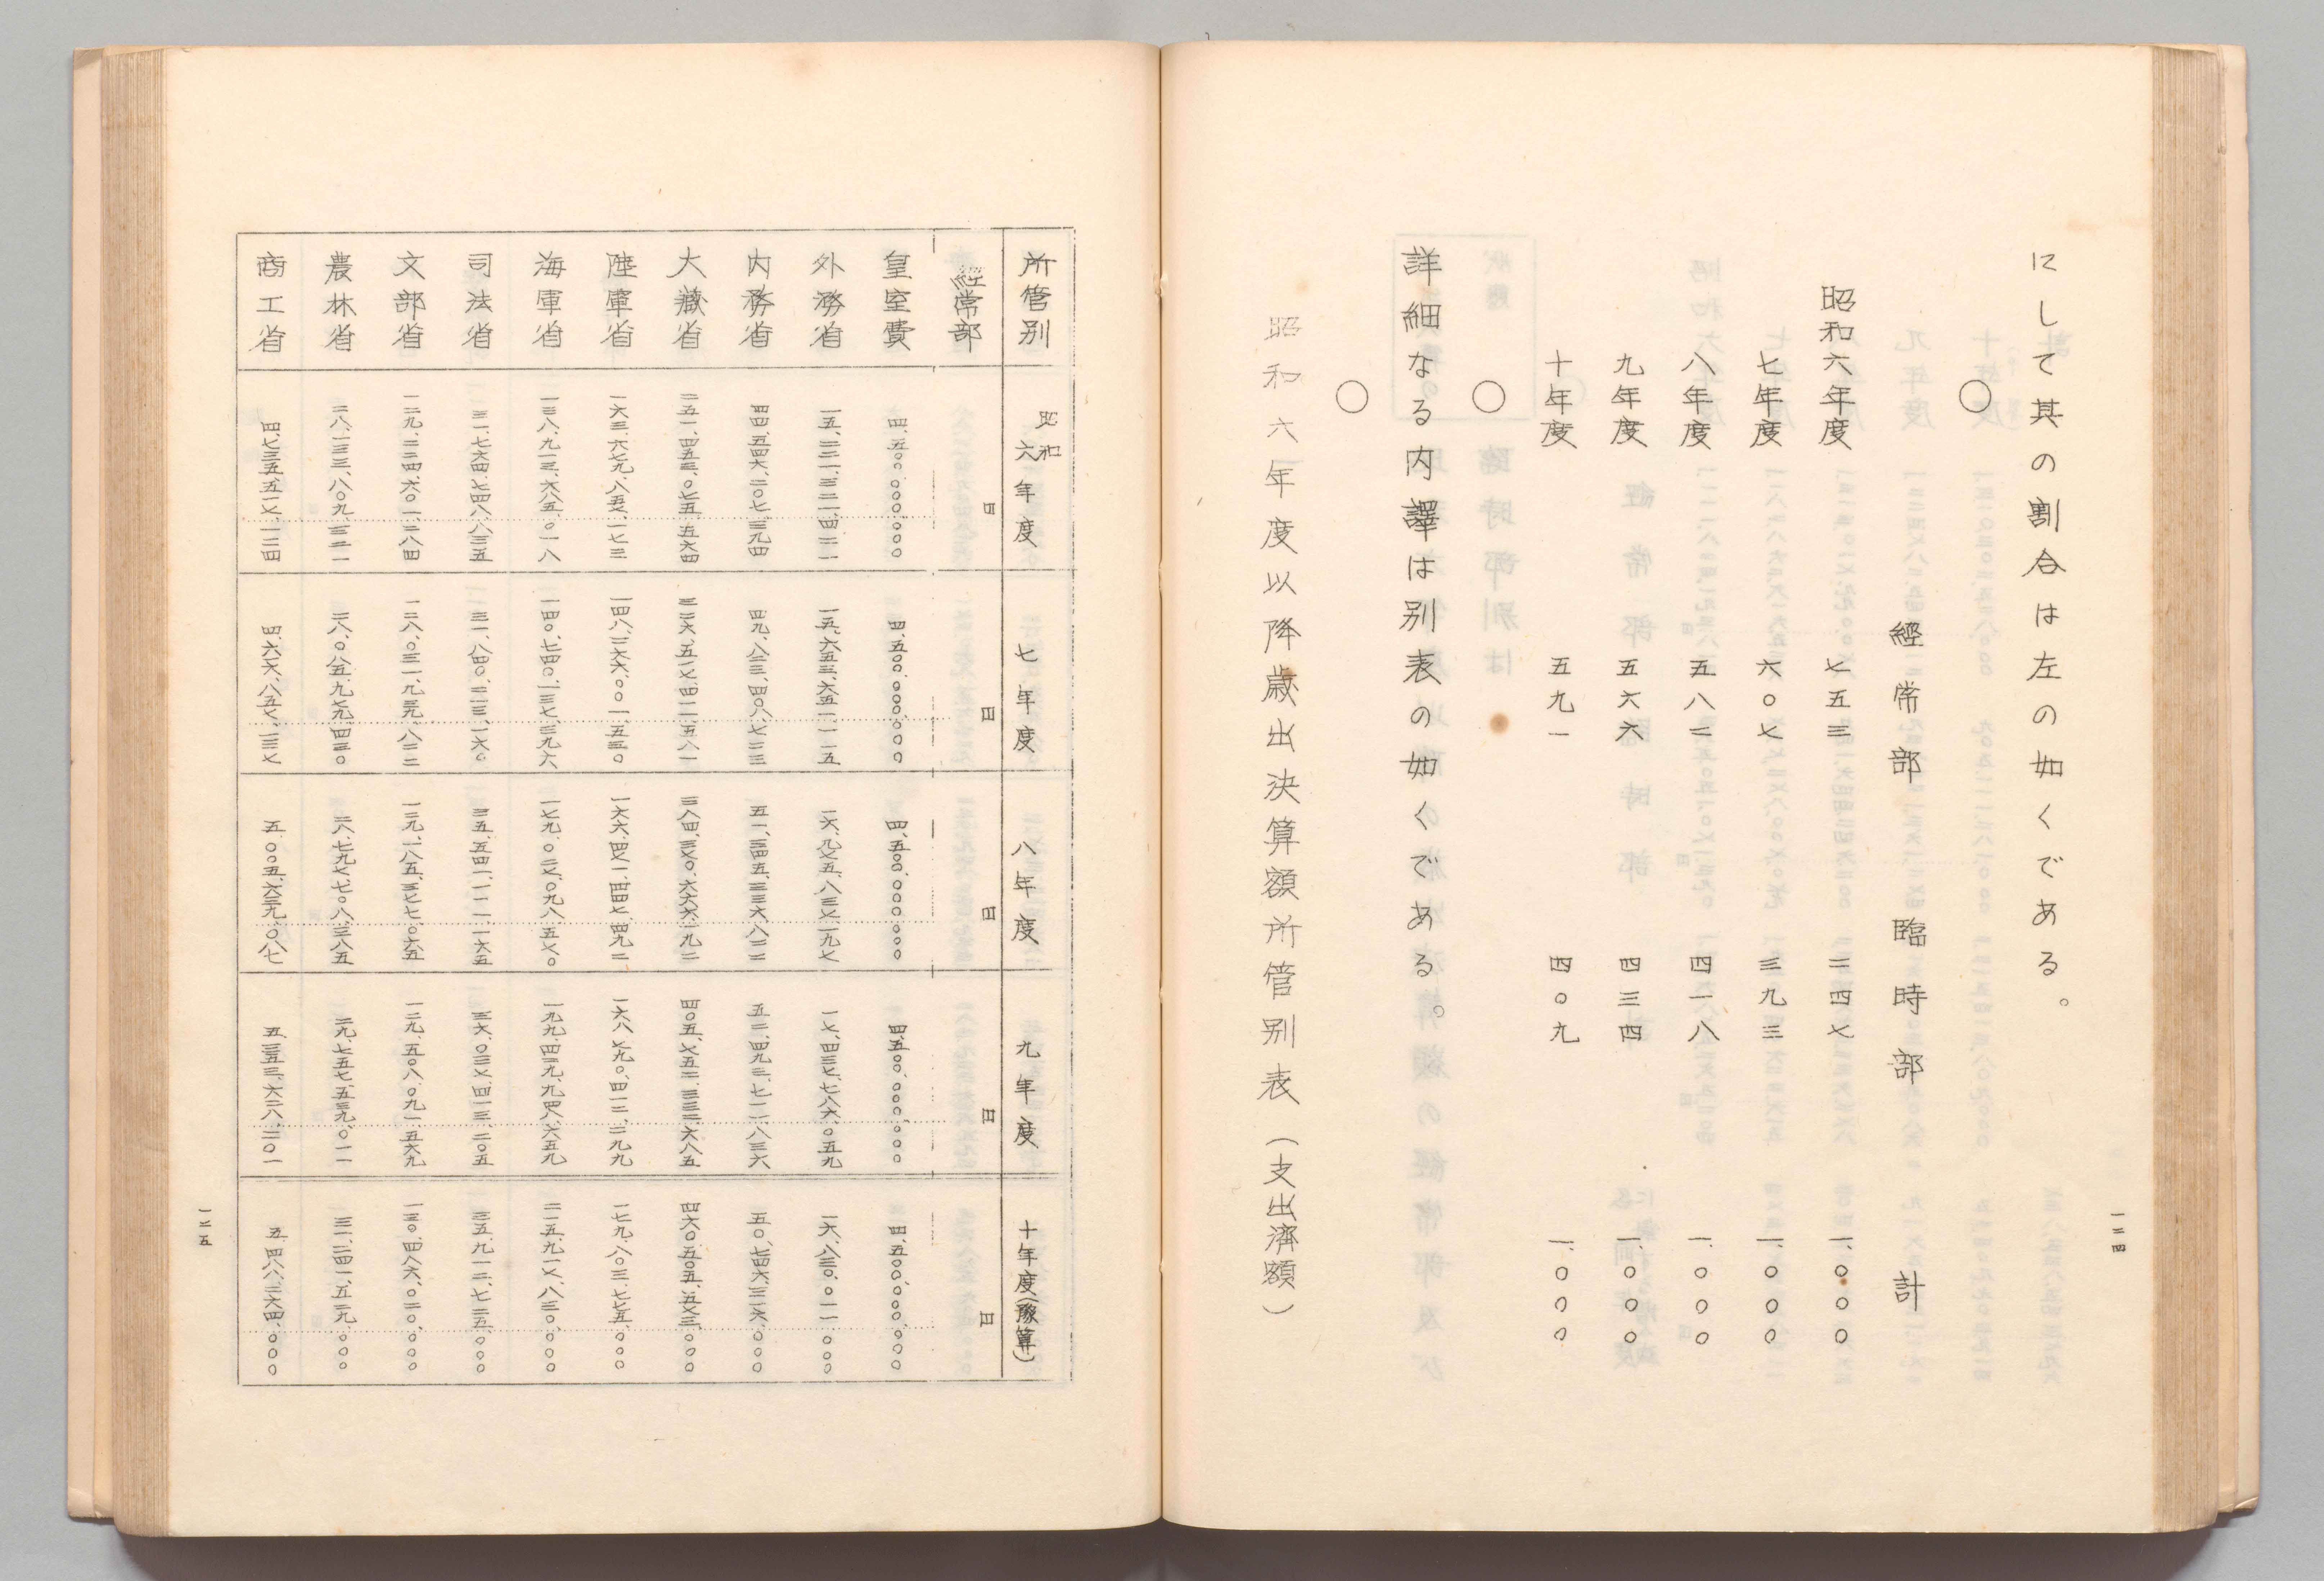 一二四
にして其の割合は左の如くである。
○
經常部 臨時部 計
昭和六年度 七五三 二四七 一、〇〇〇
七年度 六〇七 三九三 一、〇〇〇
八年度 五八二 四一八 一、〇〇〇
九年度 五六六 四三四 一、〇〇〇
十年度 五九一 四〇九 一、〇〇〇
○
詳細なる内譯は別表の如くである。
○
昭和六年度以降歳出決算額所管別表(支出濟額)
所管別 昭和六年度 七年度 八年度 九年度 十年度(豫算)
經常部 円 円 円 円 円
皇室費 四、五〇〇、〇〇〇、〇〇〇 四、五〇〇、〇〇〇、〇〇〇 四、五〇〇、〇〇〇、〇〇〇 四、五〇〇、〇〇〇、〇〇〇 四、五〇〇、〇〇〇、〇〇〇
外務省 一五、六五三、六五一、一一五 一六、九七五、八三七、一九七 一七、四三七、七八六、〇五九 一六、八三〇、〇一一、〇〇〇
内務省 四四、五四六、二〇七、三九四 四九、八三三、四〇八、七三三 五一、三四五、三三六、八三二 五二、四九三、七一二、八三六 五〇、七四六、三一六、〇〇〇
大藏省 二五一、四五三、〇七五、五六四 三二六、五一七、四一一、五八一 三八四、三七〇、六六六、一九二 四〇五、七五二、三三三、六八五 四六〇、五〇五、五七三、〇〇〇
陸軍省 一六三、六七九、八五七、一七三 一四八、二六六、〇〇一、五三〇 一六六、四七一、四四七、四九二 一六八、七九〇、四一二、二九九 一七九、八〇三、七七五、〇〇〇
海軍省 一三八、九一三、六八五、〇一八 一四〇、七四〇、一三七、三九六 一七九、〇二七、〇九八、五七〇 一九九、四三九、九四八、六五九 二一五、九一七、八三〇、〇〇〇
司法省 三一、七六四、七四八、八三五 三一、八四〇、二三三、一六〇 三五、五四一、一一一、一六五 三六、〇三七、四一三、二〇五 三五、九一二、七二五、〇〇〇
文部省 一二九、三三四、六〇一、二八四 一二八、〇三一、九三九、八三二 一二九、一八五、三七七、〇六五 一二九、五〇八、〇九一、五六九 一三〇、四八六、〇二〇、〇〇〇
農林省 二八、一三三、八〇九、三二一 二八、〇八五、九七九、四三〇 二八、七九七、七〇八、三八五 二九、七五七、五三九、〇一一 三一、二四一、五二九、〇〇〇
商工省 四、七三五、五一七、一二四 四、六六六、八五七、一三七 五、〇〇五、六三九、〇八七 五、三五三、六二八、二〇一 五、四八八、二六四、〇〇〇
一二五